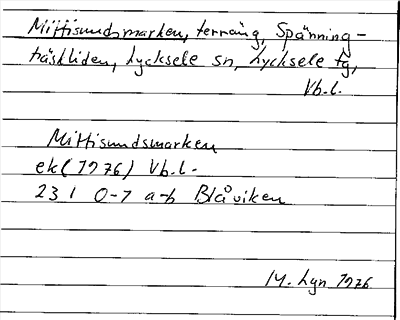 Mittisundsmarken, terräng, Spänning-
träskliden, Lycksele sn, Lycksele tg,
Vb.l.
Mittisundsmarken
ek(1976) Vb.l.
23 I 0-1 a-b Blåviken
M. Lgn 1976